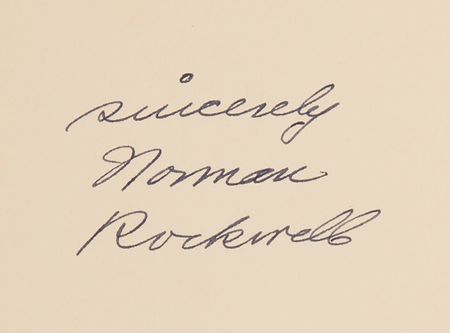 sincerely
Norman
Rockwell